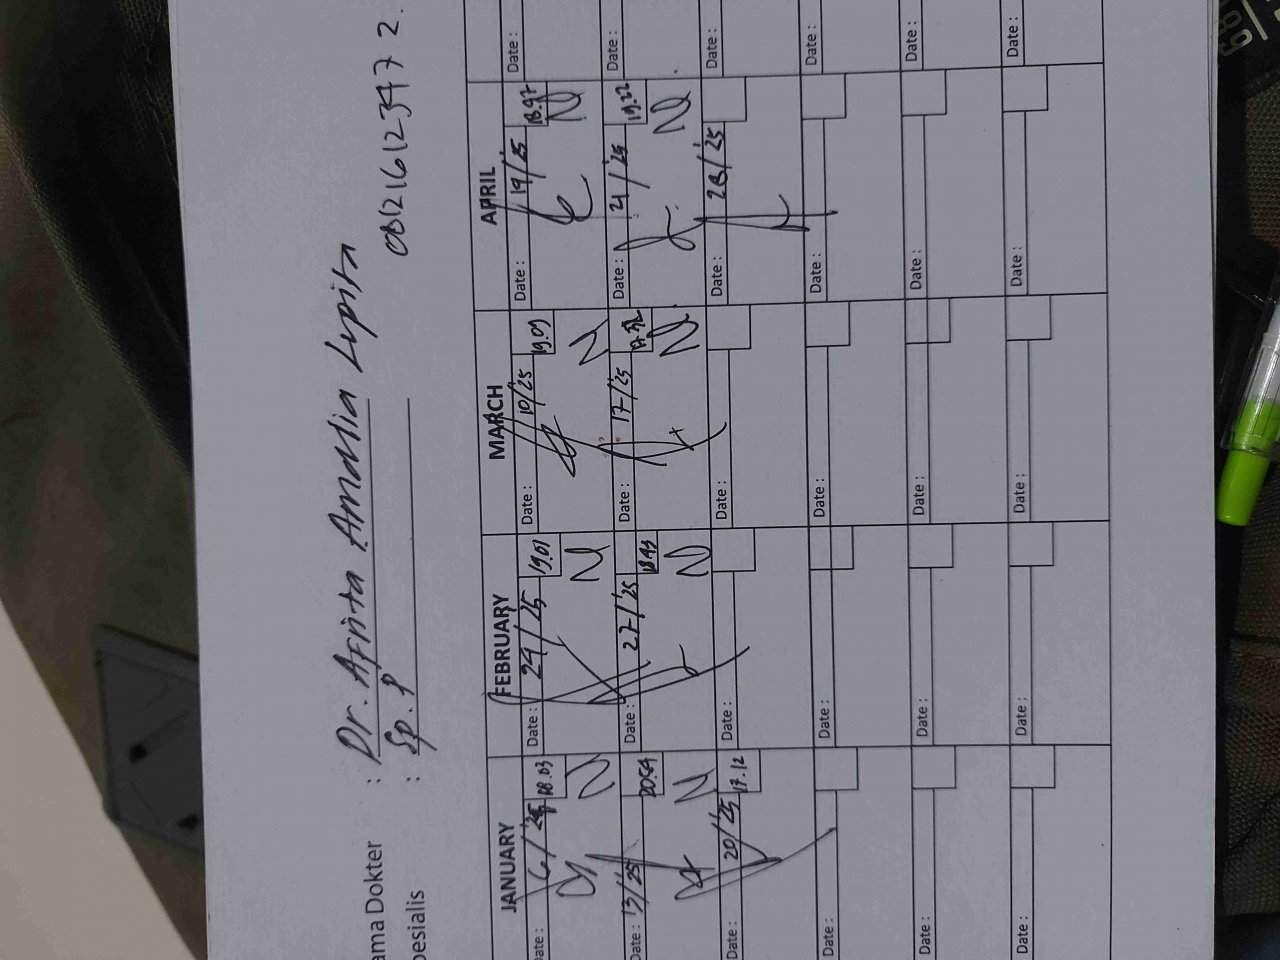 ama Dokter : Dr. Afrita Amalia Lupita
pesialis : Sp. P
08121612347 2.
JANUARY FEBRUARY MARCH APRIL
Date : 6/'25 18.03 Date : 24/'25 19.01 Date : 10/'25 19.09 Date : 14/'25 18.47 Date :
Date : 13/'25 20.54 Date : 27/'25 18.43 Date : 17/'25 17.32 Date : 21/'25 19.22 Date :
Date : 20/'25 17.12 Date : Date : Date : 28/'25 Date :
Date : Date : Date : Date : Date :
Date : Date : Date : Date : Date :
Date : Date : Date : Date : Date :